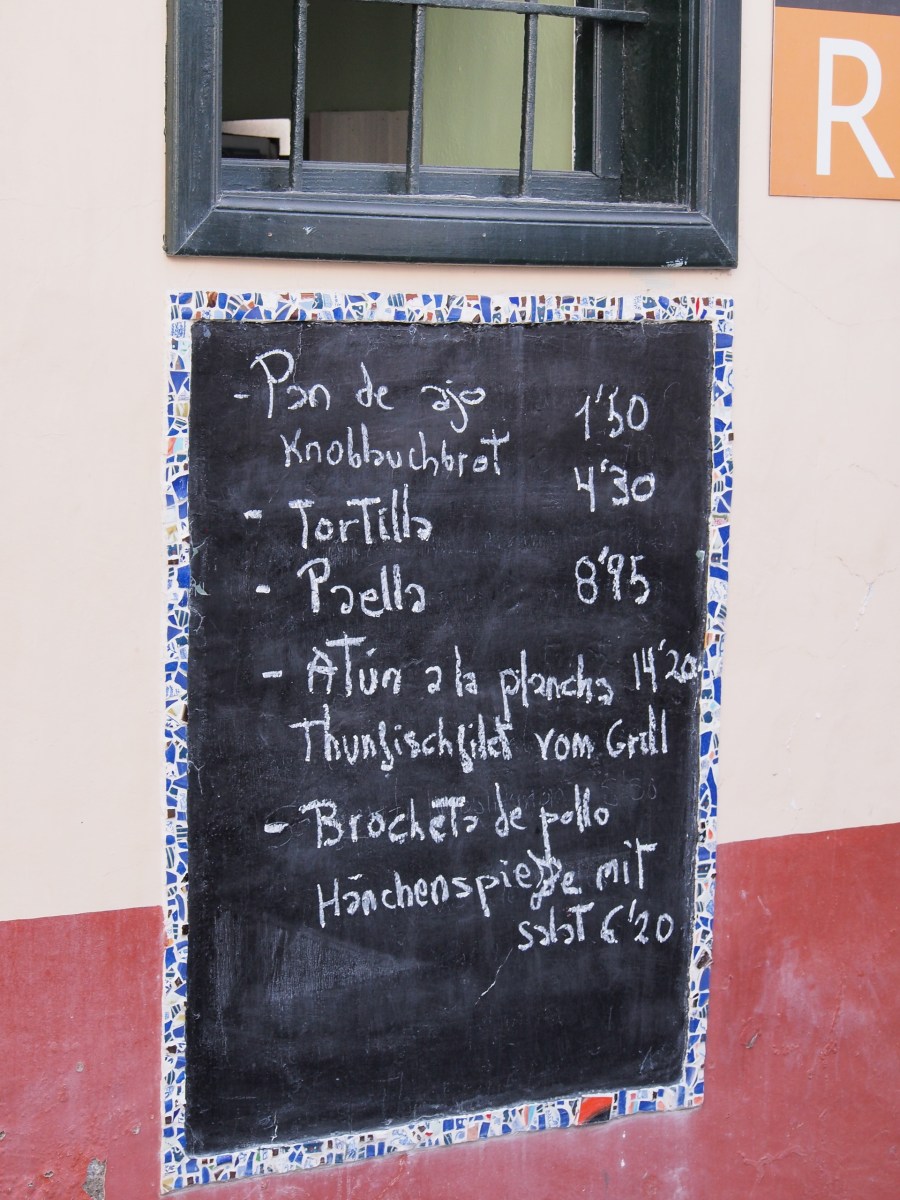 R
- Pan de ajo 1'50
Knobbauchbrot
- Tortilla 4'30
- Paella 8'95
- Atún a la plancha 14'20
Thunfischfilet vom Grill
- Brocheta de pollo
Hänchenspieße mit
salat 6'20